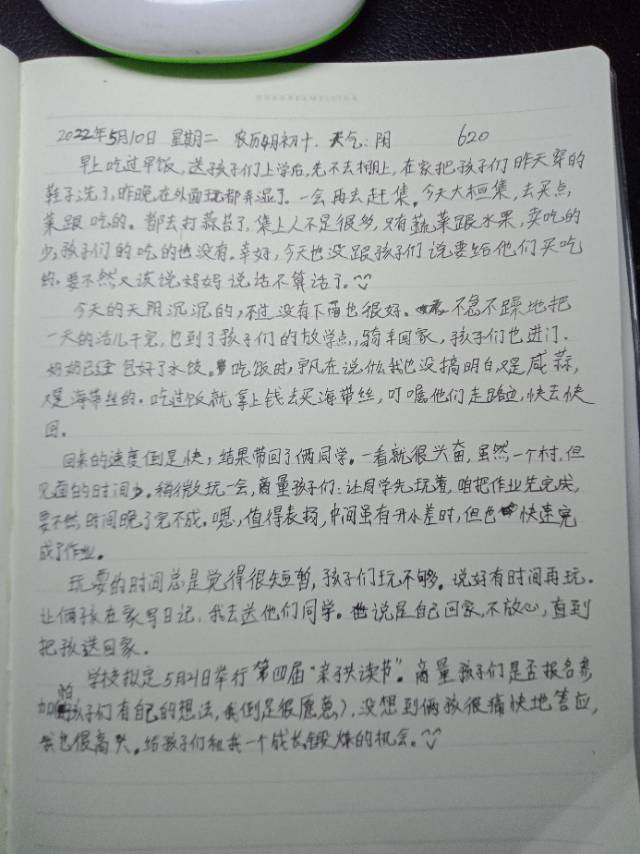 2022年5月10日 星期二 农历4月初十. 天气:阴 620
早上吃过早饭,送孩子们上学后,先不去棚上,在家把孩子们昨天穿的
鞋子洗了,昨晚在外面玩都弄湿了。一会再去赶集。今天大桓集,去买点
菜跟吃的。都去打蒜苔了,集上人不是很多,只有蔬菜跟水果,卖吃的
少,孩子们的吃的也没有。幸好,今天也没跟孩子们说要给他们买吃
的.要不然又该说妈妈说话不算话了。
今天的天阴沉沉的,不过没有下雨也很好。不急不躁地把
一天的活儿干完,也到了孩子们的放学点,骑车回家,孩子们也进门.
奶奶已经包好了水饺。吃饭时,在说什么我也没搞明白,又是咸蒜,
又是海带丝的.吃过饭就拿上钱去买海带丝,叮嘱他们走路边,快去快
回。
回来的速度倒是快,结果带回了俩同学。一看就很兴奋,虽然一个村,但
见面的时间少。稍微玩一会,商量孩子们:让同学先玩着,咱把作业先完成,
要不然,时间晚了完不成。嗯,值得表扬,中间虽有开小差时,但也快速完
成了作业。
玩耍的时间总是觉得很短暂,孩子们玩不够。说好有时间再玩.
让俩孩在家写日记,我去送他们同学。说是自己回家,不放心,直到
把孩送回家.
学校拟定5月21日举行第四届“亲子共读节”。商量孩子们是否报名参
加(怕孩子们有自己的想法,我倒是很愿意),没想到俩孩很痛快地答应,
我也很高兴。给孩子们和我一个成长锻炼的机会。